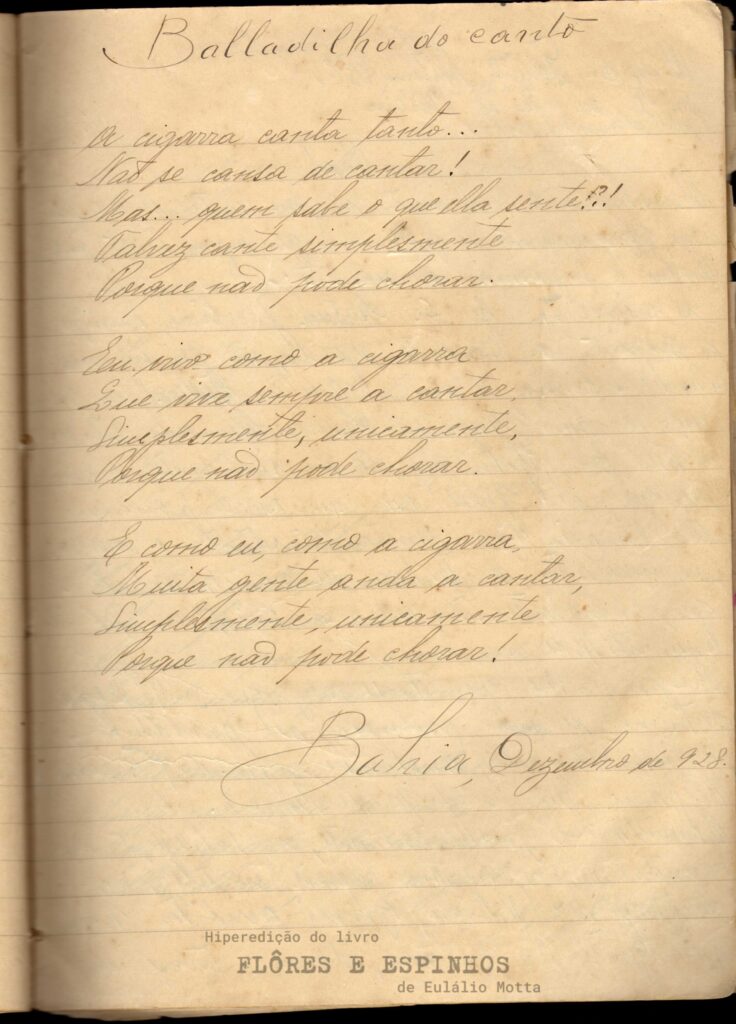 Balladilha do canto
A cigarra canta tanto...
Não se cansa de cantar!
Mas... quem sabe o que ella sente?!
Talvez cante simplesmente
Porque não pode chorar.
Eu vivo como a cigarra
Que vive sempre a cantar,
Simplesmente, unicamente,
Porque não pode chorar.
E como eu, como a cigarra,
Muita gente anda a cantar,
Simplesmente, unicamente
Porque não pode chorar!
Bahia, Dezembro de 928.
Hiperedição do livro
FLÔRES E ESPINHOS
de Eulálio Motta